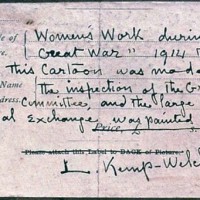 le of { "Women's Work durin
Great War" 1914
this Cartoon was mad
The inspection of the
dress. Committee, and the large
al Exchange was painted
Price, £ s.
Please attach this Label to BACK of Picture.
L. Kemp-Welc